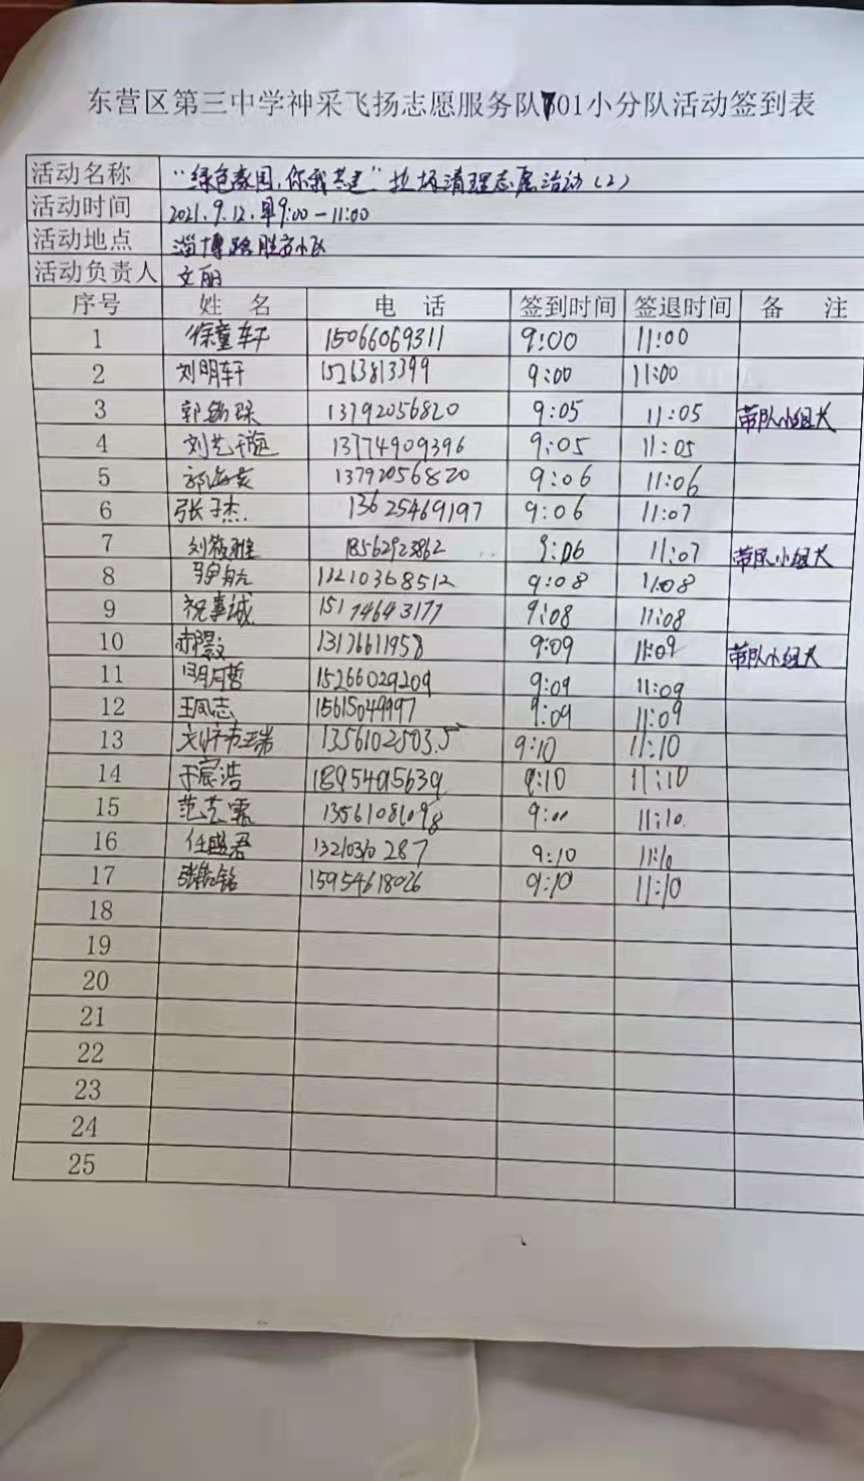 东营区第三中学神采飞扬志愿服务队701小分队活动签到表
活动名称 "绿色家园,你我共建"垃圾清理志愿活动(2)
活动时间 2021.9.12.早9:00-11:00
活动地点 淄博路胜宏小区
活动负责人 文丽
序号 姓名 电话 签到时间 签退时间 备注
1 徐童轩 15066069311 9:00 11:00
2 刘明轩 15263813399 9:00 11:00
3 13792056820 9:05 11:05 带队小组长
4 刘艺璇 13774909396 9:05 11:05
5 13792056820 9:06 11:06
6 张子杰 13625469197 9:06 11:07
7 刘筱雅 18562923862 9:06 11:07 带队小组长
8 13210368512 9:08 11:08
9 祝事诚 9:08 11:08
10 13176611958 9:09 11:09 带队小组长
11 明月哲 15266029209 9:09 11:09
12 王凤志 15615049997 9:09 11:09
13 13561025035 9:10 11:10
14 于宸浩 18954915639 9:10 11:10
15 范艺霖 13561081098 11:10
16 任盛君 9:10 11:10
17 15954618026 9:10 11:10
18
19
20
21
22
23
24
25